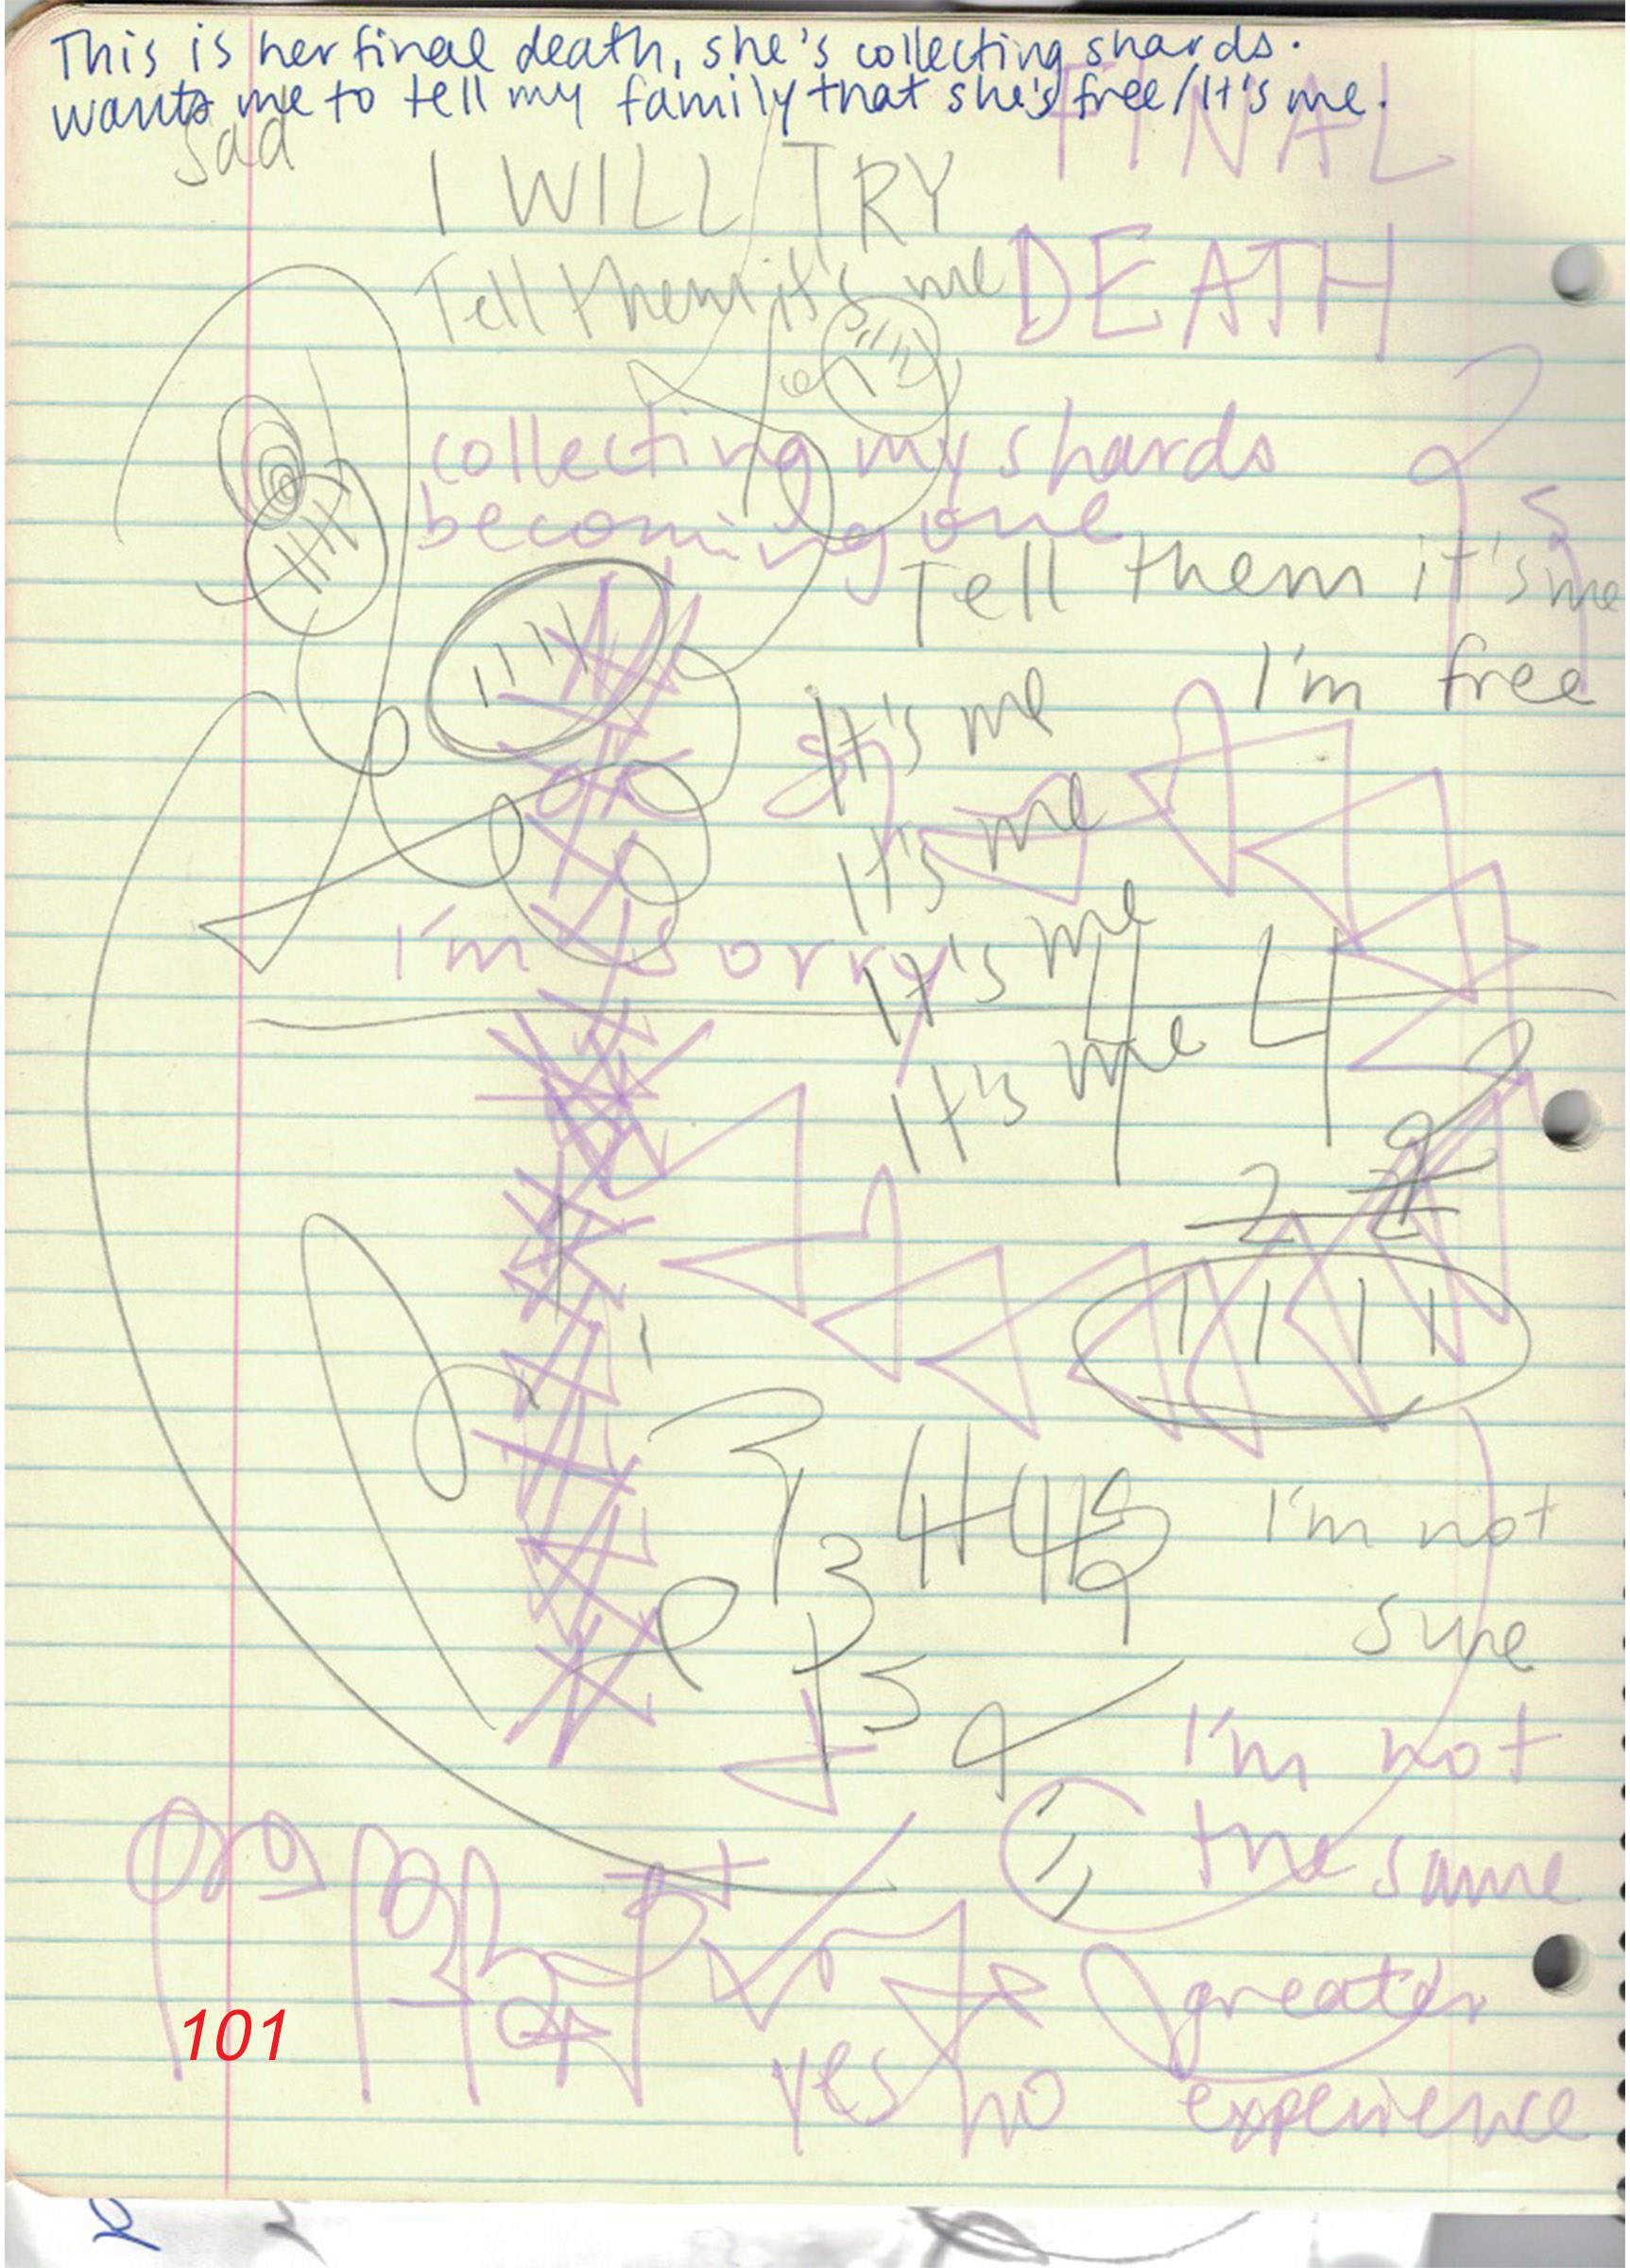 This is her final death, she's collecting shards.
wants me to tell my family that she's free/It's me.
Sad
FINAL
I WILL TRY
Tell them it's me
DEATH
collecting my shards
becoming one
Tell them it's me
I'm free
It's me
It's me
I'm sorry
It's me
It's me
4 4
2 2
1 1 1 1
I'm not
sure
I'm not
the same
greater
yes no
experience
101